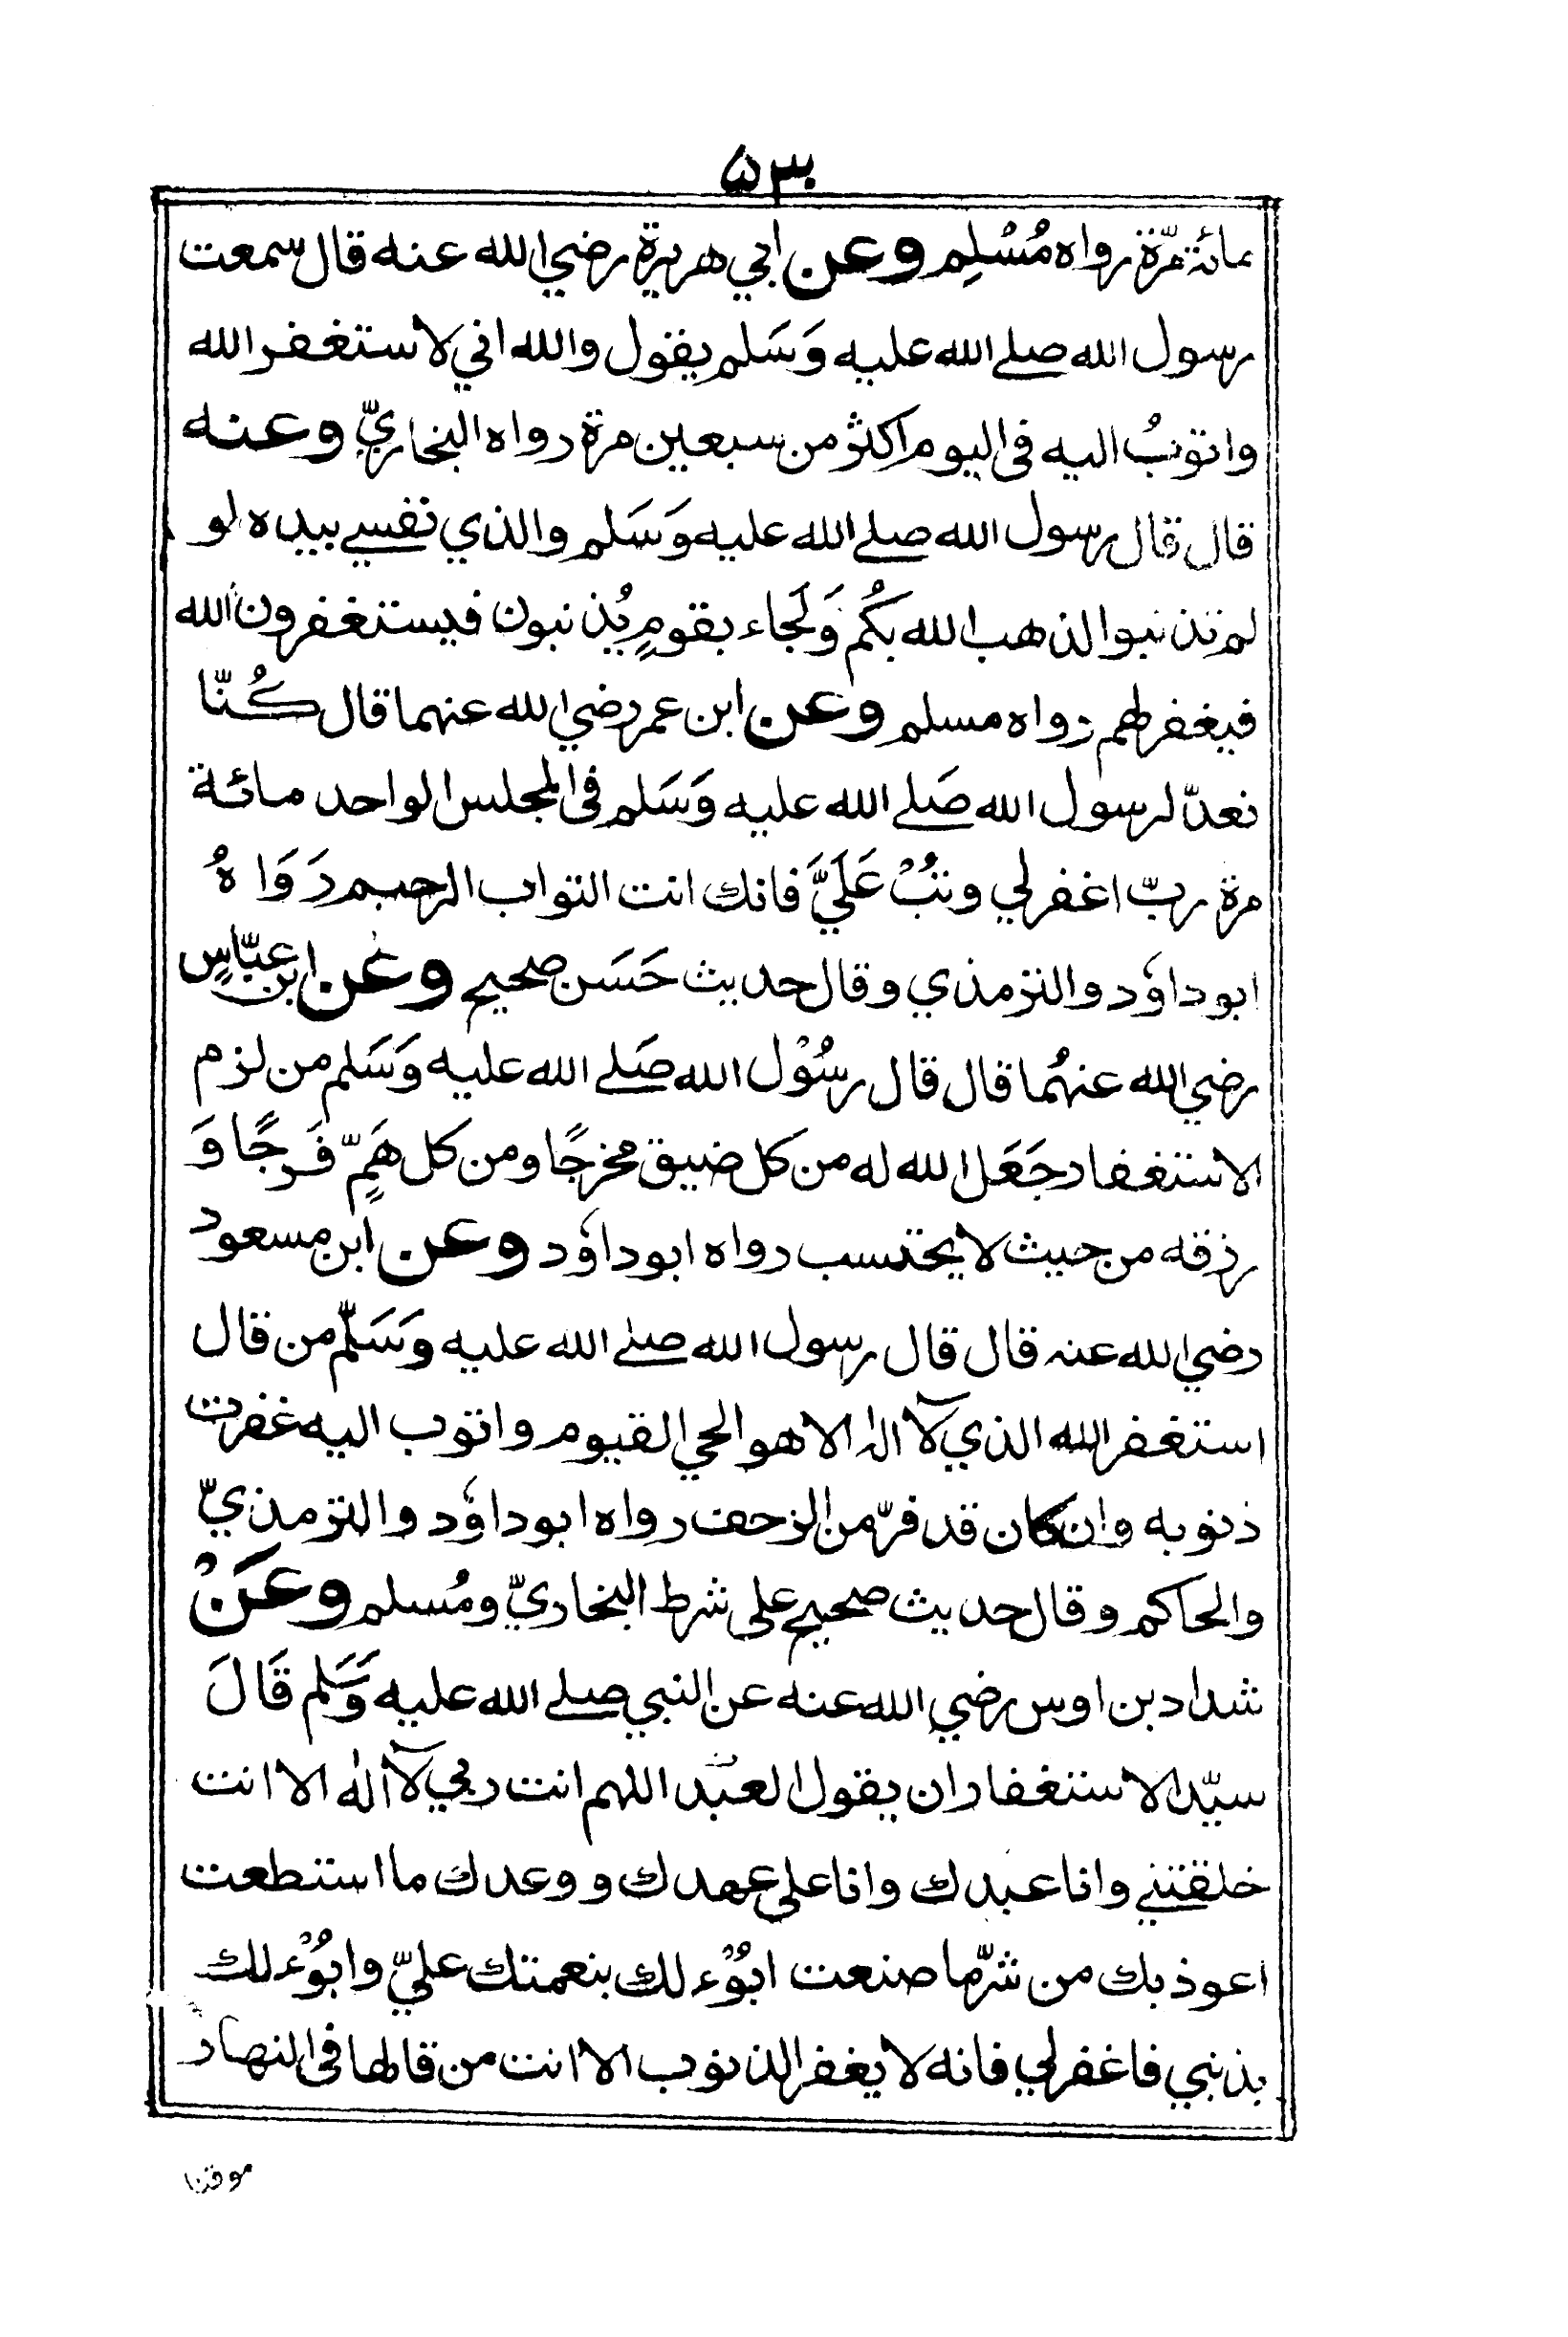 ۵۳۰
مائة مرّة رواه مُسْلِم وعن ابي هريرة رضي الله عنه قال سمعت
رسول الله صلے الله عليه وَسَلم يقول والله اني لاستغفر الله
واتوبُ اليه في اليوم اكثر من سبعين مرة رواه البخاريّ وعنه
قال قال رسول الله صلے الله عليه وَسَلم والذي نفسے بيده لو
لم تذنبوا لذهب الله بكُم وَلَجاء بقومٍ يُذنبون فيستغفرون الله
فيغفر لهم رواه مسلم وعن ابن عمر رضي الله عنهما قال كُنّا
نعدّ لرسول الله صَلے الله عليه وَسَلم في المجلس الواحد مائة
مرة ربّ اغفر لي وتُبْ عَلَيَّ فانك انت التواب الرحيم رَوَاهُ
ابو داوٗد والترمذي وقال حديث حَسَن صحيح وعن ابن عبّاسٍ
رضي الله عنهُما قال قال رسُوْل الله صَلے الله عليه وَسَلم من لزم
الاستغفار جَعَل الله له من كل ضيق مخرجًا ومن كل هَمٍّ فَرجًا وَ
رزقه من حيث لا يحتسب رواه ابو داوٗد وعن ابن مسعود
رضي الله عنه قال قال رسول الله صلے الله عليه وَسَلّم من قال
استغفر الله الذي لآ اله الا هو الحي القيوم واتوب اليه غفرت
ذنوبه وان كان قد فرّ من الزحف رواه ابو داوٗد والترمذيّ
والحاكم وقال حديث صحيح على شرط البخاريّ ومُسلم وعَنْ
شداد بن اوس رضي الله عنه عن النبي صلے الله عليه وَسَلم قَالَ
سيّد الاستغفار ان يقول العبد اللهم انت ربي لآ اله الا انت
خلقتنے وانا عبدك وانا على عهدك ووعدك ما استطعت
اعوذ بك من شرّ ما صنعت ابُوْء لك بنعمتك عليّ وابُوْء لك
بذنبي فاغفر لي فانه لا يغفر الذنوب الا انت من قالها في النهار
موقنا